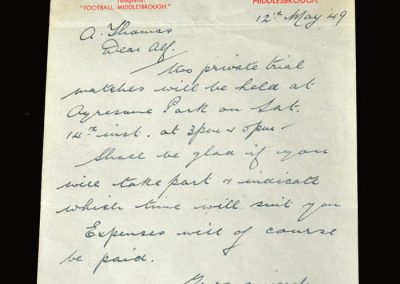 Telegrams:
"FOOTBALL, MIDDLESBROUGH."
MIDDLESBROUGH.
12th May 49
A. Thomas
Dear Alf.
Two private trial
matches will be held at
Ayresome Park on Sat.
14th inst. at 3pm & 5pm-
Shall be glad if you
will take part & indicate
which time will suit you
Expenses will of course
be paid.